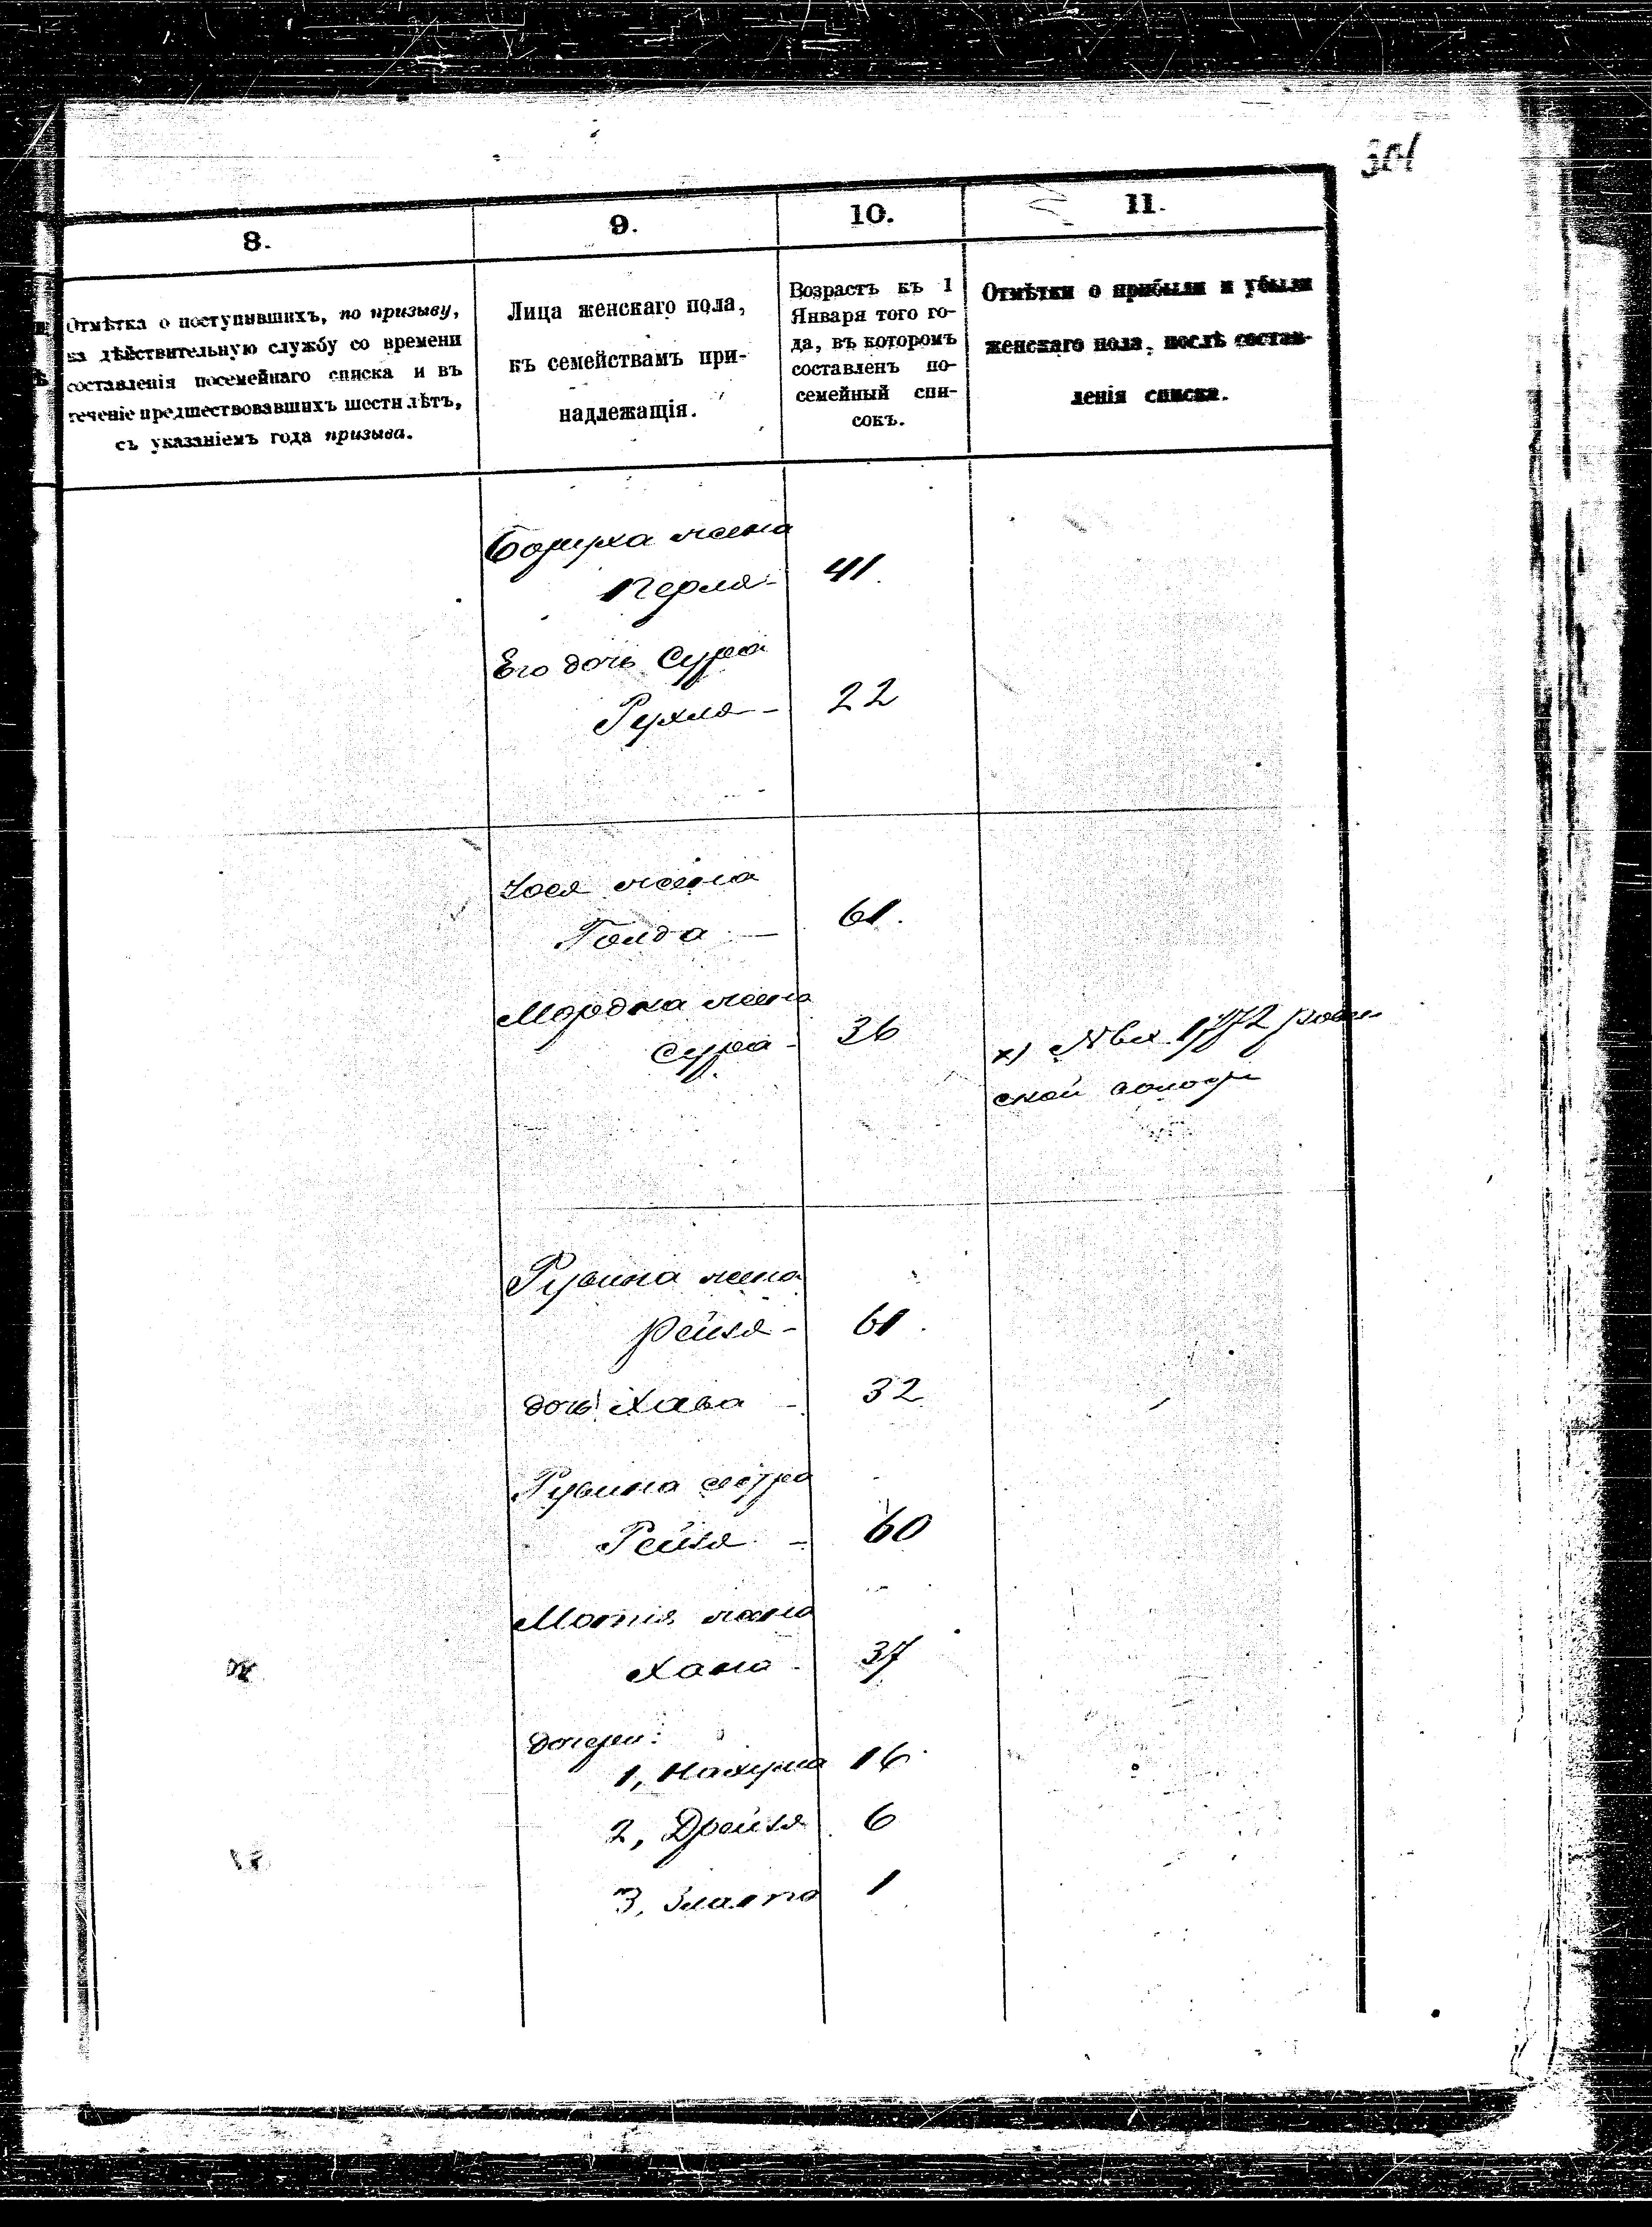 301
8.
9.
10.
11.
Отмѣтка о поступившихъ, по призыву,
на дѣйствительную службу со времени
составленія посемейнаго списка и въ
теченіе предшествовавшихъ шести лѣтъ,
съ указаніемъ года призыва.
Лица женскаго пола,
къ семействамъ при-
надлежащія.
Возрастъ къ 1
Января того го-
да, въ которомъ
составленъ по-
семейный спи-
сокъ.
Отмѣтки о прибыли и убыли
женскаго пола, послѣ состав-
ленія списка.
жена
Перля - 41.
Его дочь Сура
Рухля - 22
жена
Голда - 61.
Мордка жена
Сура - 36
х)
ской
Рувина жена
Рейзя - 61.
дочь Хава - 32
Рувина сестра
Рейзя - 60
жена
Хана - 37
дочери:
1, Нахума 16
2, Дрейзя 6
3, Злата 1